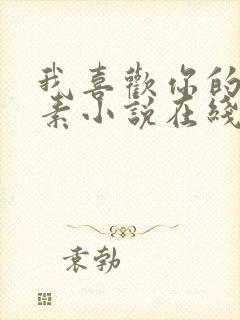 我喜歡你的
素小說在綫
袁勃